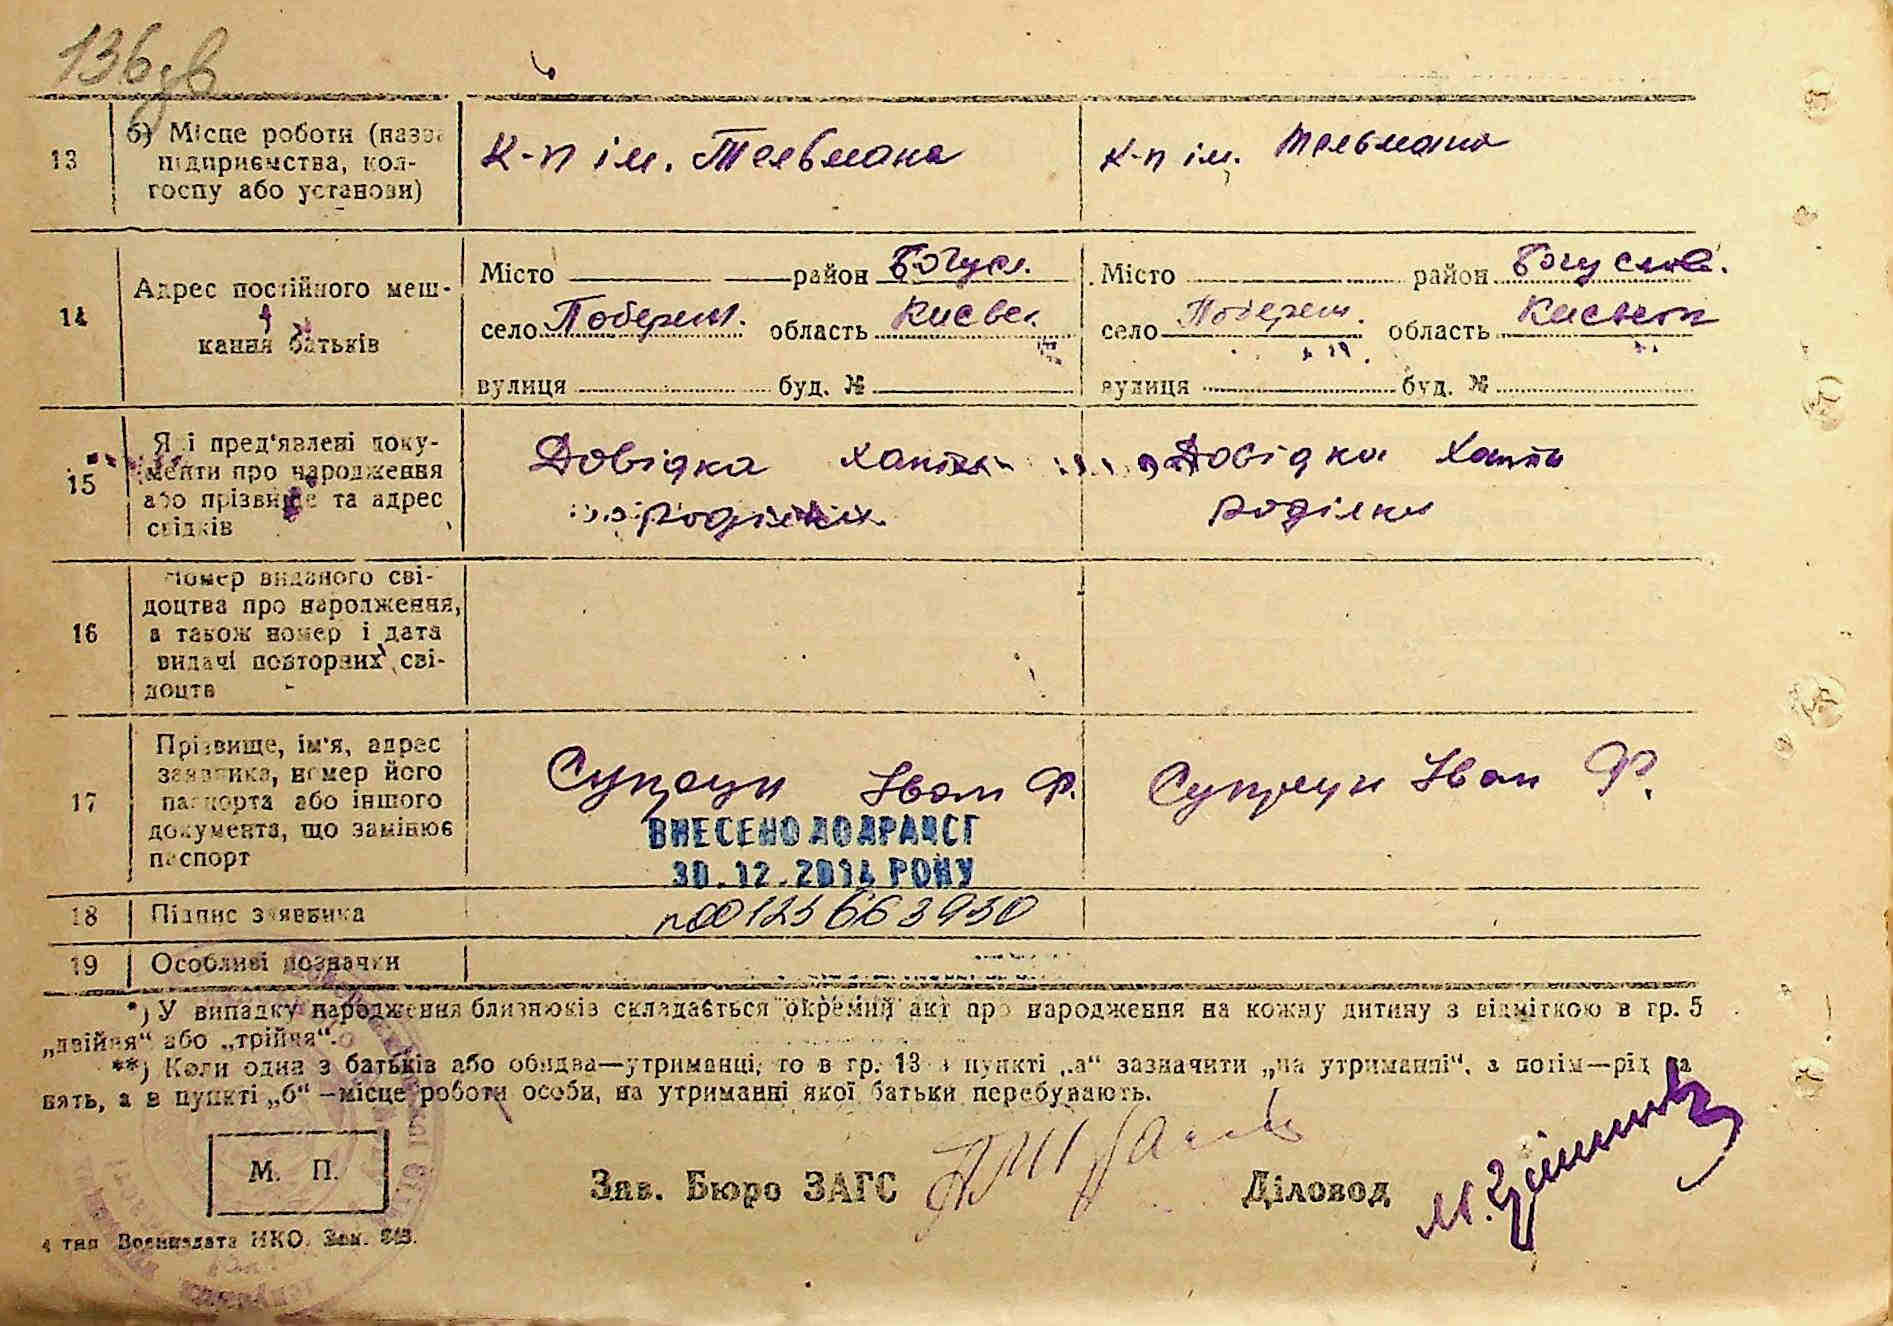 136зв
13
б) Місце роботи (назва
підприємства, кол-
госпу або установи)
К-п ім. Тельмана
К-п ім. Тельмана
14
Адрес постійного меш-
кання батьків
Місто район Богусл.
село Побереж. область Києвс.
вулиця буд. №
Місто район Богуслав.
село Побереж. область
вулиця буд. №
15
Які пред'явлені доку-
менти про народження
або прізвище та адрес
свідків
Довідка хати
роділки
Довідка хати
роділки
16
Номер виданого сві-
доцтва про народження,
а також номер і дата
видачі повторних сві-
доцтв
17
Прізвище, ім'я, адрес
заявника, номер його
паспорта або іншого
документа, що замінює
паспорт
Супрун Іван Ф.
Супрун Іван Ф.
ВНЕСЕНО ДО ДРАЦСГ
30.12.2014 РОКУ
00123663930
18
Підпис заявника
19
Особливі позначки
*) У випадку народження близнюків складається окремий акт про народження на кожну дитину з відміткою в гр. 5
„двійня“ або „трійня“.
**) Коли одна з батьків або обидва—утриманці, то в гр. 13 в пункті „а“ зазначити „на утриманні“, а потім—рід за
нять, а в пункті „б“—місце роботи особи, на утриманні якої батьки перебувають.
М. П.
Зав. Бюро ЗАГС
Діловод
4 тип Воениздата НКО. Зак.